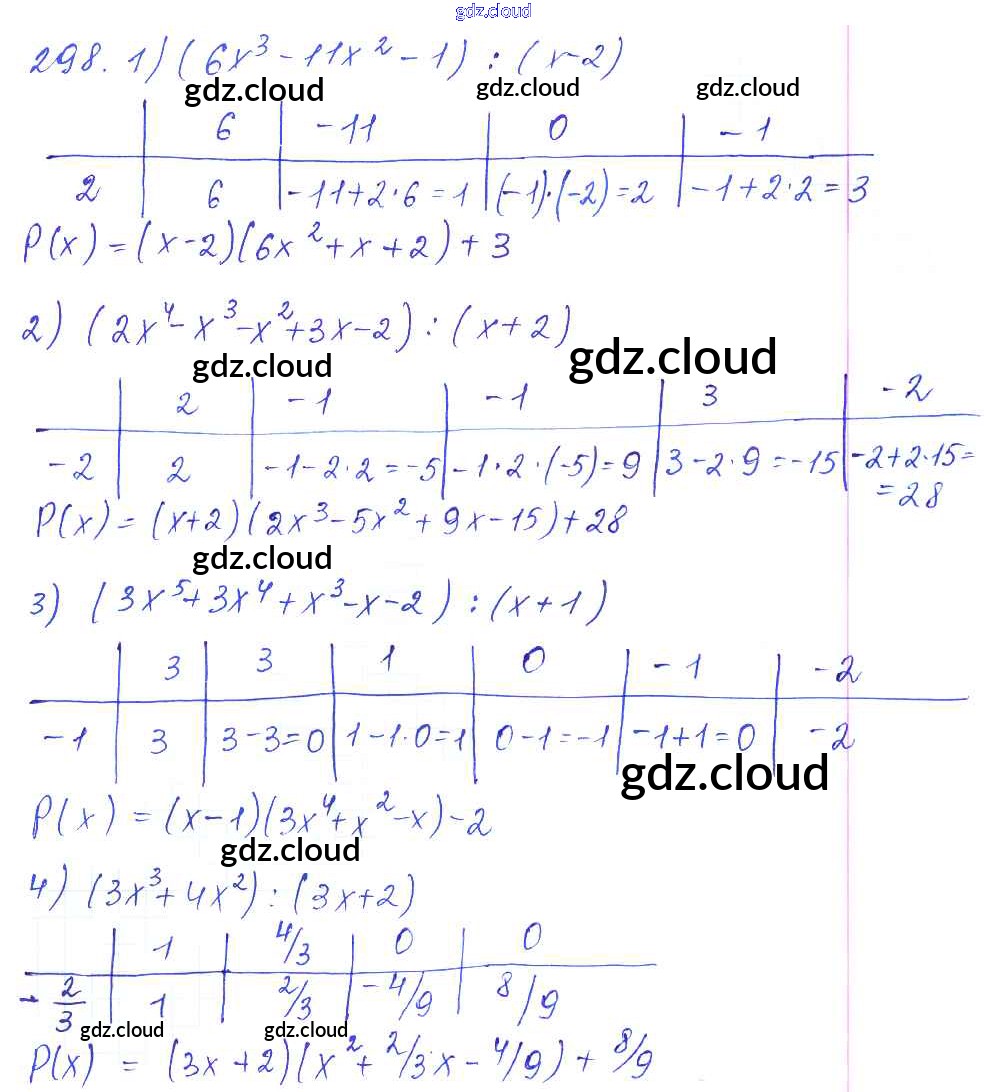 gdz.cloud
298. 1) (6x³ - 11x² - 1) : (x-2)
gdz.cloud gdz.cloud gdz.cloud
6 -11 0 -1
2 6 -11+2·6=1 (-1)·(-2)=2 -1+2·2=3
P(x) = (x-2)(6x²+x+2)+3
2) (2x⁴-x³-x²+3x-2) : (x+2)
gdz.cloud gdz.cloud
2 -1 -1 3 -2
-2 2 -1-2·2=-5 -1·2·(-5)=9 3-2·9=-15 -2+2·15=
=28
P(x) = (x+2)(2x³-5x²+9x-15)+28
gdz.cloud
3) (3x⁵+3x⁴+x³-x-2) : (x+1)
3 3 1 0 -1 -2
-1 3 3-3=0 1-1·0=1 0-1=-1 -1+1=0 -2
gdz.cloud
P(x) = (x-1)(3x⁴+x²-x)-2
gdz.cloud
4) (3x³+4x²) : (3x+2)
1 4/3 0 0
-2/3 1 2/3 -4/9 8/9
gdz.cloud gdz.cloud gdz.cloud
P(x) = (3x+2)(x²+2/3x-4/9)+8/9